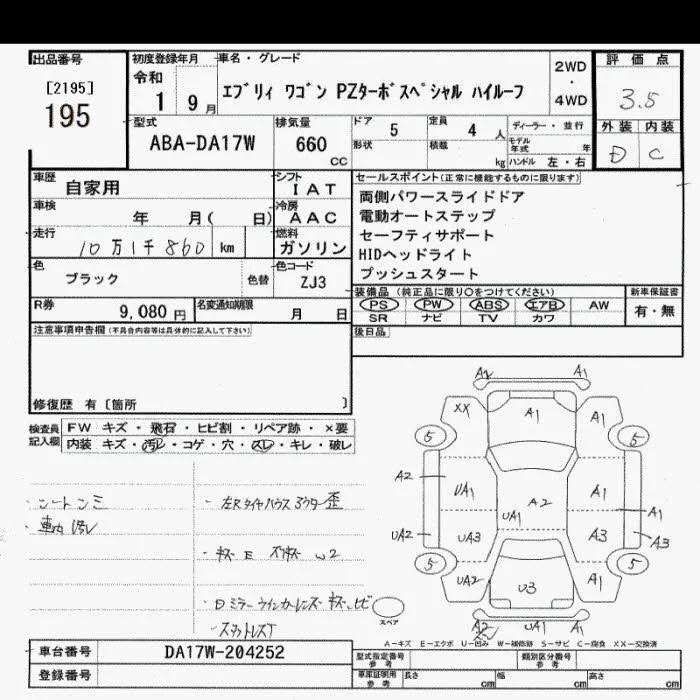 出品番号
[2195]
195
初度登録年月
令和
1 9 月
車名・グレード
エブリィ ワゴン PZターボスペシャル ハイルーフ
2WD
・
4WD
評価点
3.5
外装 内装
D C
型式
ABA-DA17W
排気量
660
cc
ドア
5
形状
定員
4 人
積載
kg
ディーラー・並行
モデル年式 年
ハンドル 左・右
車歴
自家用
車検
年 月( 日)
走行
10万1千860 km
色
ブラック
色替
シフト
IAT
冷房
AAC
燃料
ガソリン
色コード
ZJ3
セールスポイント(正常に機能するものに限ります)
両側パワースライドドア
電動オートステップ
セーフティサポート
HIDヘッドライト
プッシュスタート
装備品 (純正品に限り〇をつけてください)
PS PW ABS エアB AW
SR ナビ TV カワ
新車保証書
有・無
R券
9,080 円
名変通知期限
月 日
後日品
注意事項申告欄(不具合内容等は具体的に記入して下さい)
修復歴 有 [箇所 ]
検査員記入欄
FW キズ・飛石・ヒビ割・リペア跡・×要
内装 キズ・汚レ・コゲ・穴・スレ・キレ・破レ
・シートシミ
・車内汚レ
・左Rタイヤハウス アウター歪
・キズ E スリキズ W2
・Dミラーウインカーレンズ キズ、ヒビ
A2 A1
XX A1 A1
5 5
A2 UA1 A2 A1 A1
UA1
UA2 UA3 A3 A3
5 5
UA2 U3 A1
A2 UA1 A1
スペア
A－キズ E－エクボ U－凹み W－補修跡 S－サビ C－腐食 XX－交換済
車台番号
DA17W-204252
登録番号
型式指定番号
参考
類別区分番号
参考
車庫証明用
参考
長さ cm
幅 cm
高さ cm